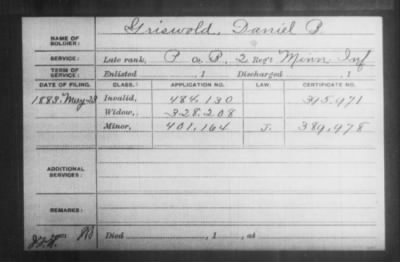 NAME OF SOLDIER: Griswold, Daniel P.
SERVICE: Late rank, P Co. B, 2 Reg't Minn Inf
TERM OF SERVICE: Enlisted , 1 Discharged , 1
DATE OF FILING. CLASS. APPLICATION NO. LAW. CERTIFICATE NO.
1883, May 28 Invalid, 484.130 315.971
Widow, 328.208
Minor, 401,164 J. 389,978
ADDITIONAL SERVICES:
REMARKS:
Died , 1 , at